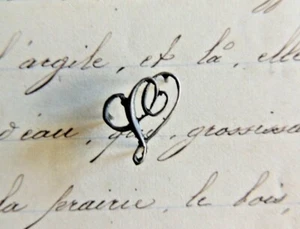 l'argile, et là, elle
d'eau, qui, grossissa
la prairie, le bois,